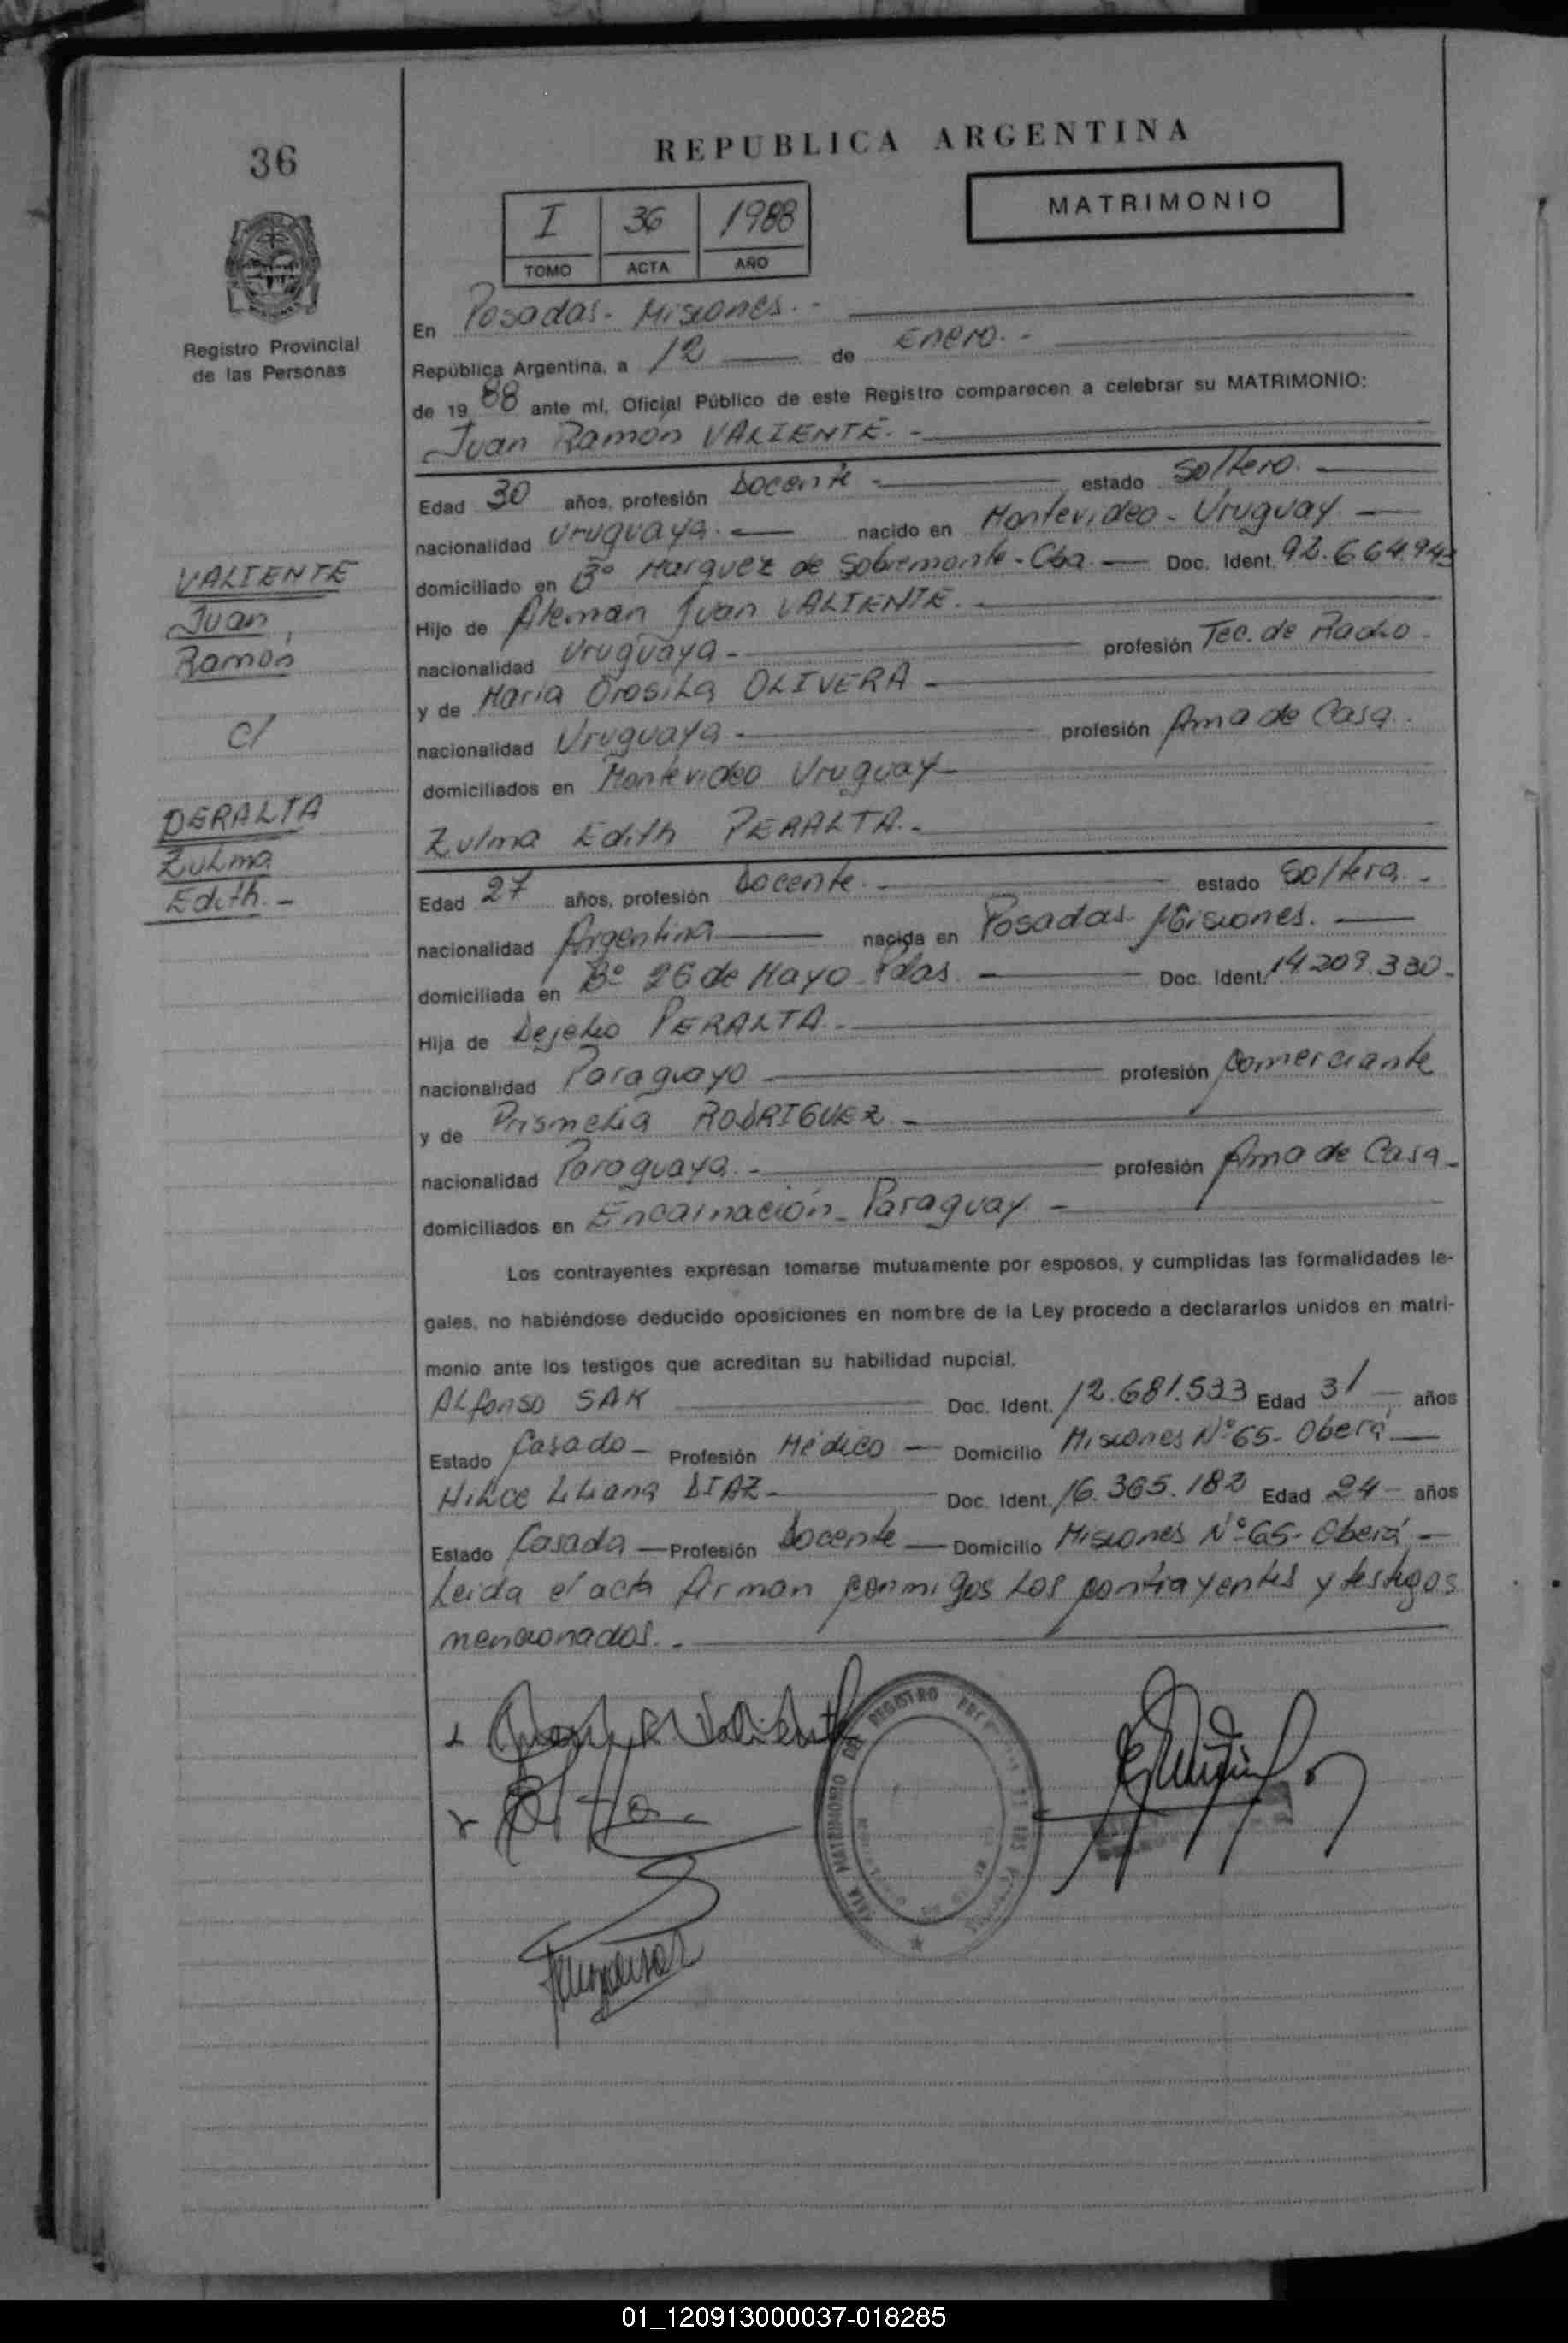 REPUBLICA ARGENTINA
36
MATRIMONIO
I 36 1988
TOMO ACTA AÑO
Registro Provincial
de las Personas
En Posadas - Misiones. -
República Argentina, a 12 de Enero. -
de 19 88 ante mí, Oficial Público de este Registro comparecen a celebrar su MATRIMONIO:
Juan Ramón VALIENTE. -
Edad 30 años, profesión Docente - estado Soltero.
nacionalidad Uruguaya. nacido en Montevideo - Uruguay
domiciliado en B° Marquez de Sobremonte - Cba. Doc. Ident. 92.664.943
Hijo de Aleman Juan VALIENTE.
nacionalidad Uruguaya - profesión Tec. de Radio -
y de Maria Orosila OLIVERA -
nacionalidad Uruguaya - profesión Ama de Casa.
domiciliados en Montevideo Uruguay -
Zulma Edith PERALTA. -
Edad 27 años, profesión Docente. estado Soltera. -
nacionalidad Argentina nacida en Posadas - Misiones.
domiciliada en B° 26 de Mayo - Pdas. Doc. Ident. 14.209.330 -
Hija de PERALTA. -
nacionalidad Paraguayo profesión Comerciante
y de Prismelia RODRIGUEZ -
nacionalidad Paraguaya. - profesión Ama de Casa -
domiciliados en Encarnación - Paraguay -
VALIENTE
Juan
Ramón
c/
PERALTA
Zulma
Edith. -
Los contrayentes expresan tomarse mutuamente por esposos, y cumplidas las formalidades le-
gales, no habiéndose deducido oposiciones en nombre de la Ley procedo a declararlos unidos en matri-
monio ante los testigos que acreditan su habilidad nupcial.
Alfonso SAK Doc. Ident. 12.681.533 Edad 31 años
Estado Casado - Profesión Médico - Domicilio Misiones N° 65 - Oberá
Hilce Liliana DIAZ - Doc. Ident. 16.365.182 Edad 24 - años
Estado Casada - Profesión Docente - Domicilio Misiones N° 65 - Oberá -
Leida el acta firman conmigos los contrayentes y testigos
mencionados. -
AREA MATRIMONIO DEL REGISTRO
01_120913000037-018285